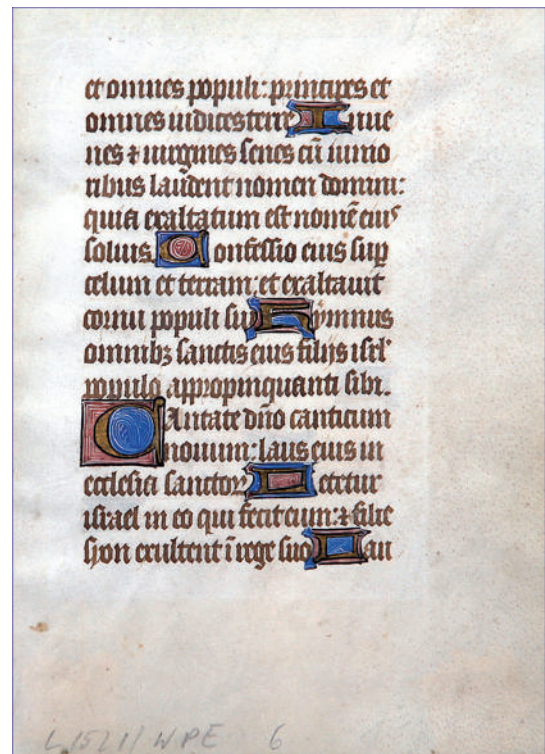 et omnes populi: principes et
omnes iudices terre Iuue
nes ⁊ uirgines senes cū iunio
ribus laudent nomen domini:
quia exaltatum est nomē eiuˢ
solius. Confessio eius sup
celum et terram: et exaltauit
cornu populi sui Hymnus
omnibꝫ sanctis eius filijs isrl'
populo appropinquanti sibi.
CAntate dño canticum
nouum: laus eius in
ecclesia sanctoꝝ Letetur
israel in eo qui fecit eum: ⁊ filie
syon exultent ī rege suo Lau
L 1521/ WPE 6